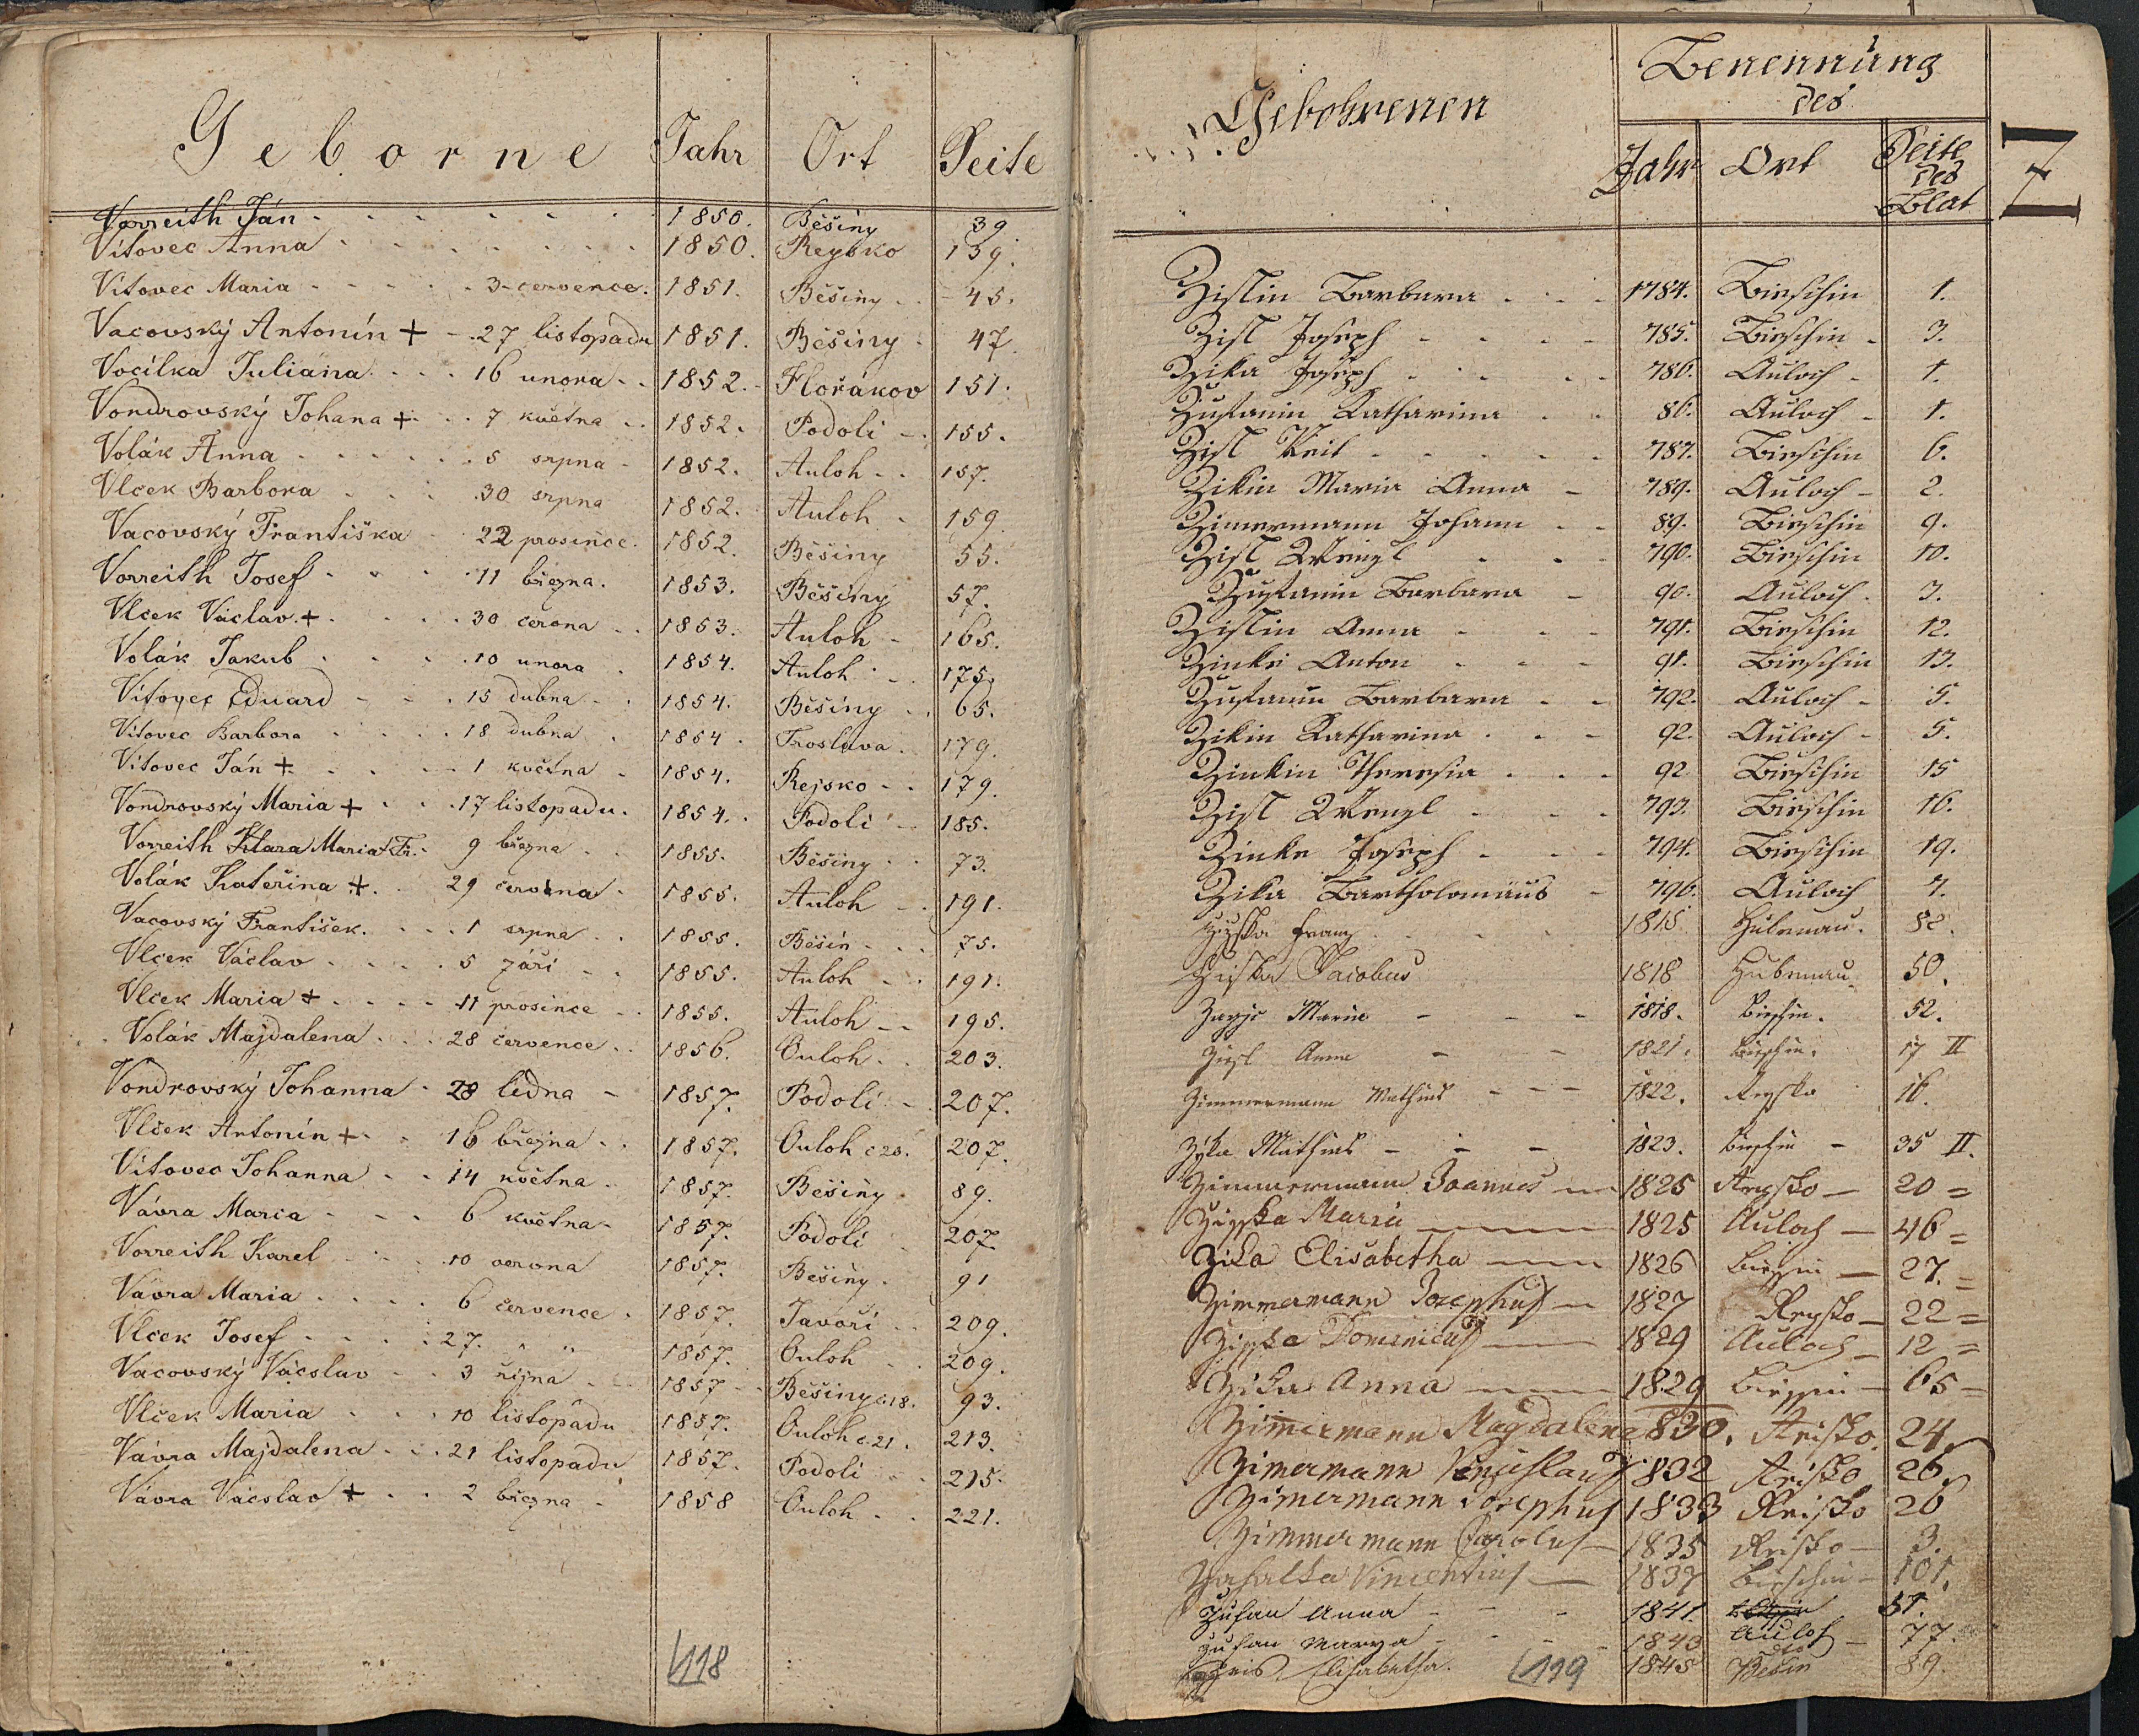 Geborne Jahr Ort Seite
Vorreith Ján 1850. Běšiny 39
Vítovec Anna 1850. Reysko 139.
Vítovec Maria 3 července. 1851. Běšiny 45.
Vacovský Antonín + 27 listopadu 1851. Běšiny 47.
Vocílka Juliána 16 unora 1852. Flořákov 151.
Vondrovský Johana + 7 května 1852. Podolí 155.
Volák Anna 5 srpna 1852. Auloh 157.
Vlček Barbora 30 srpna 1852. Auloh 159.
Vacovský Františka 22 prosince. 1852. Běšiny 55.
Vorreith Josef 11 března. 1853. Běšiny 57.
Vlček Václav + 30 června 1853. Auloh 165.
Volák Jakub 10 unora 1854. Auloh 175.
Vítovec Eduard 15 dubna 1854. Běšiny 65.
Vítovec Barbora 18 dubna 1854. 179.
Vítovec Ján + 1 května 1854. Rejsko 179.
Vondrovský Maria + 17 listopadu. 1854. Podolí 185.
Vorreith Klara Maria 9 března 1855. Běšiny 73.
Volák Kateřina + 29 června 1855. Auloh 191.
Vacovský František. 1 srpna 1855. Běšin 75.
Vlček Václav 5 září 1855. Auloh 191.
Vlček Maria + 11 prosince 1855. Auloh 195.
Volák Majdalena 28 července 1856. Ouloh 203.
Vondrovský Johanna 28 ledna 1857. Podolí 207.
Vlček Antonín + 16 března 1857. Ouloh č 20. 207.
Vítovec Johanna 14 května 1857. Běšiny 89.
Vávra Maria 6 května 1857. Podolí 207.
Vorreith Karel 10 června 1857. Běšiny 91
Vávra Maria 6 července 1857. Javoří 209.
Vlček Josef 27. „ „ 1857. Ouloh 209.
Vacovský Vácslav 3 října 1857 Běšiny č. 18. 93.
Vlček Maria 10 listopadu 1857. Ouloh č. 21. 213.
Vávra Majdalena 21 listopadu 1857. Podolí 215.
Vávra Vácslav + 2 března 1858 Ouloh 221.
118
Gebohrenen
Benennung
des
Jahr Ort Seite
des
Blat
Z
Zislin Barbara 1784. Bieschin 1.
Zisl Joseph 785. Bieschin 3.
Zika Joseph 786. Auloch 1.
Katharina 86. Auloch 1.
Zisl Veit 787. Bieschin 6.
Zikin Maria Anna 789. Auloch 2.
Zimermann Johann 89. Bieschin 9.
Zisl Wenzl 790. Bieschin 10.
Barbara 90. Auloch 3.
Zislin Anna 791. Bieschin 12.
Zinke Anton 91. Bieschin 13.
Barbara 792. Auloch 5.
Zikin Katharina 92. Auloch 5.
Zinkin Theresia 92 Bieschin 15
Zisl Wenzl 793. Bieschin 16.
Zinke Joseph 794. Bieschin 19.
Zika Bartholomäus 796. Auloch 7.
Franz 1815
Jacobus 1818 50.
Maria 1818. Bieschin. 52.
Zisl Anna 1821. Bieschin. 17 II
Zimmermann Mathias 1822. Reysko 16.
Zyka Mathias 1823. Bieschin 35 II.
Zimmermann Joannes 1825 Reysko 20 =
Maria 1825 Auloch 46 =
Zika Elisabetha 1826 27. =
Zimmermann Josephus 1827 Reysko 22 =
Dominicus 1829 Auloch 12 =
Zika Anna 1829 65 =
Zimmermann Magdalena 830. Reisko 24.
Zimermann Venceslaus 832 Reisko 26.
Zimermann Josephus 1833 Reisko 26
Zimmermann Carolus 1835 Reisko 3.
Zahalka Vincentius 1839 Bieschin 101.
Zuhan Anna 1841. 51.
Zuhan Marya 1843 Auloh 77.
Elisabetha. 1845 Běšin 89.
119